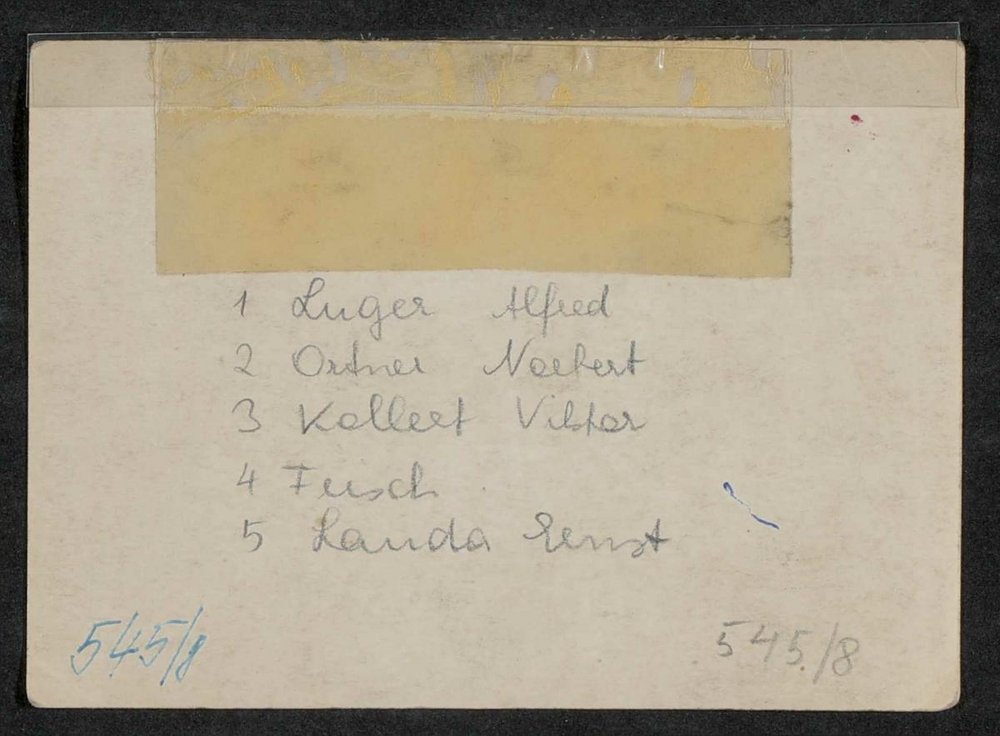 1 Luger Alfred
2 Ortner Norbert
3 Kollert Viktor
4 Fersch
5 Landa Ernst
545/8
545/8